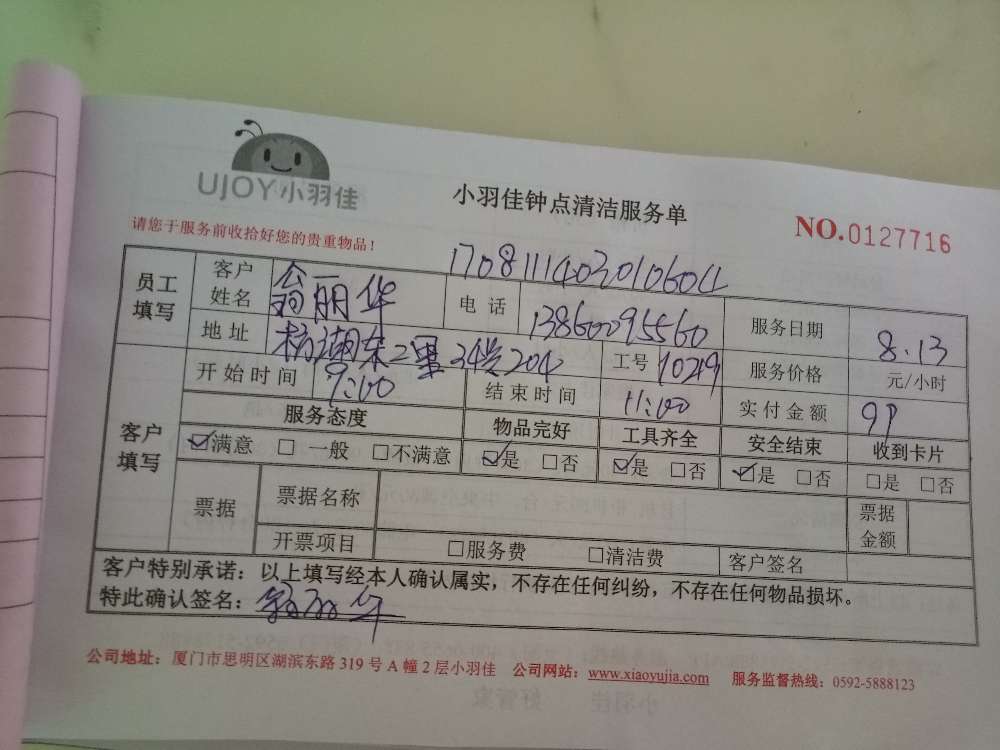 UJOY小羽佳
小羽佳钟点清洁服务单
NO.0127716
请您于服务前收拾好您的贵重物品！
员工填写 客户姓名 翁丽华 电话 13860095560 服务日期 8.13
地址 湖东二里34号204 工号 10219 服务价格 元/小时
客户填写 开始时间 9:00 结束时间 11:00 实付金额
服务态度 物品完好 工具齐全 安全结束 收到卡片
☑满意 □一般 □不满意 ☑是 □否 ☑是 □否 ☑是 □否 □是 □否
票据 票据名称 票据金额
开票项目 □服务费 □清洁费 客户签名
客户特别承诺：以上填写经本人确认属实，不存在任何纠纷，不存在任何物品损坏。
特此确认签名：翁丽华
公司地址：厦门市思明区湖滨东路319号A幢2层小羽佳 公司网站：www.xiaoyujia.com 服务监督热线：0592-5888123